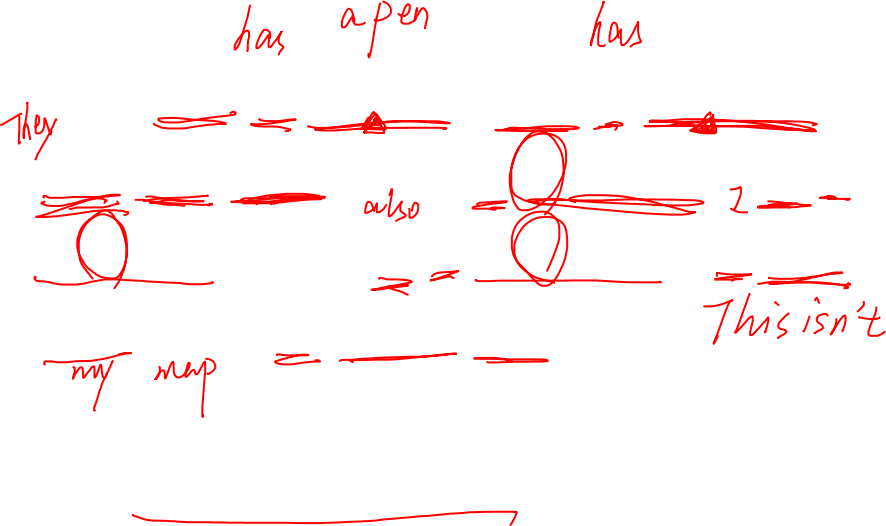 has a pen has
They
also I
This isn't
my map